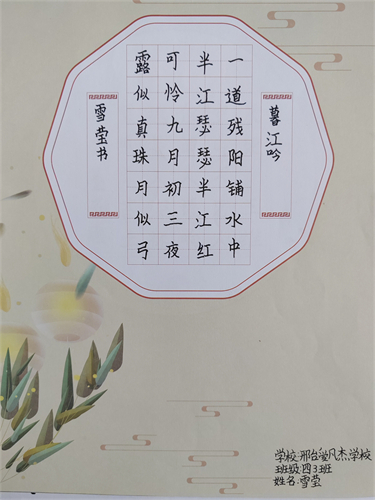 暮江吟
一道残阳铺水中
半江瑟瑟半江红
可怜九月初三夜
露似真珠月似弓
雪莹书
学校:邢台凤杰学校
班级:四3班
姓名:雪莹